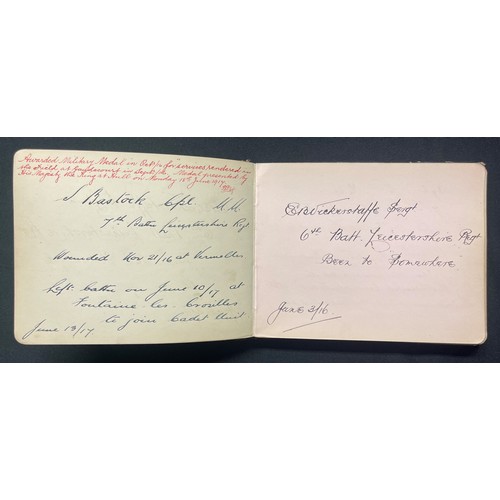 Awarded Military Medal in Oct/16 for services rendered in
the Field at Gueudecourt in Sept/16. Medal presented by
His Majesty the King at Hull on Monday 18th June 1917.
S Bastock Cpl M.M.
7th Battn Leicestershire Regt
Wounded Nov 21/16 at Vermelles
Left Battn on June 10/17 at
Fontaine les Croselles
to join Cadet Unit
June 18/17
Bickerstaffe Sergt
6th Batt. Leicestershire Regt
Been to Somewhere
June 3/16